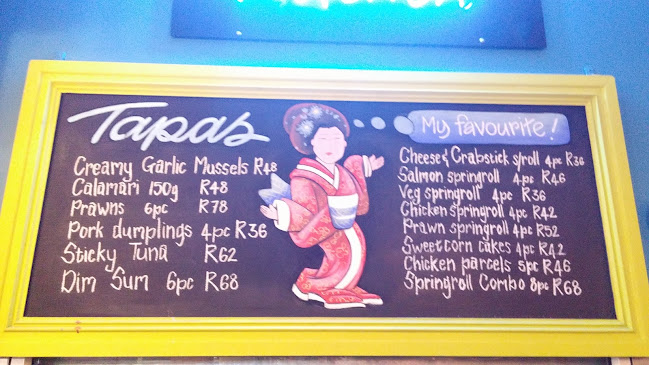 Tapas
Creamy Garlic Mussels R48
Calamari 150g R48
Prawns 6pc R78
Pork dumplings 4pc R36
Sticky Tuna R62
Dim Sum 6pc R68
My favourite!
Cheese & Crabstick s/roll 4pc R36
Salmon springroll 4pc R46
Veg springroll 4pc R36
Chicken springroll 4pc R42
Prawn springroll 4pc R52
Sweetcorn cakes 4pc R42
Chicken parcels 5pc R46
Springroll Combo 8pc R68